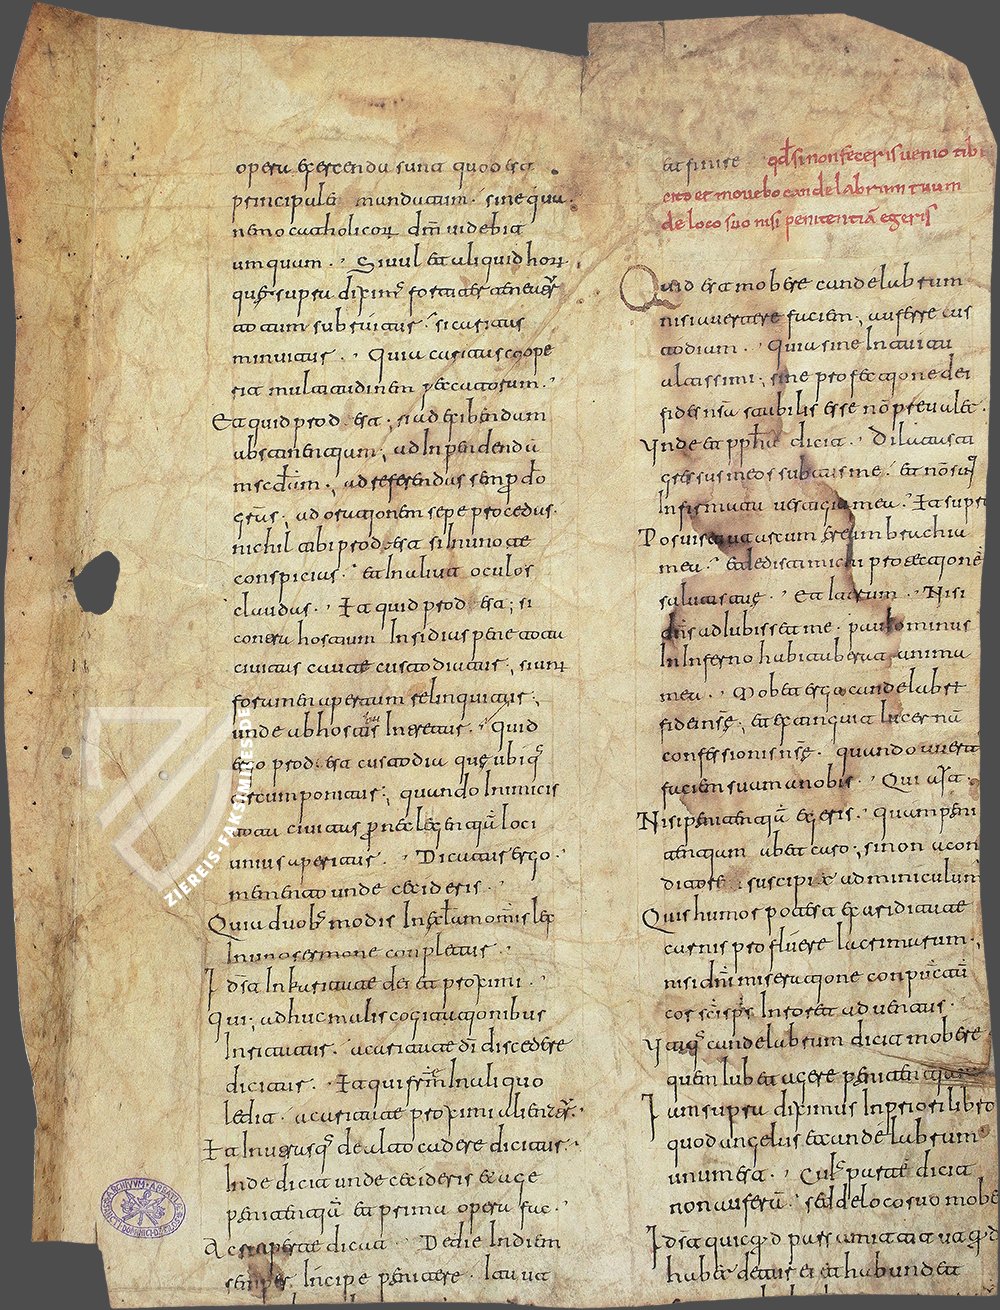 opera exercenda sunt quod est
principalē mandatum · sine qua
nemo catholicorum dn̄m videbit
umquam · Simul et aliquid horum
que supra diximus fortiter tenetur
totum subruitur · si caritas
minuitur · Quia caritas coope
rit multitudinem peccatorum ·
Et quid prod est · si ad exibendam
abstinentiam · ad Inpendendā
· ad referendas semp do
ad orationem sepe procedas ·
nichil tibi prod est si Inuno te
conspicias · et In aliut oculos
claudas · Ita quid prod est · si
contra hostium Insidias pene tota
civitas caute custodiatur · si unū
foramen apertum relinquatur ·
unde ab hostis Intretur · Quid
ergo prod est custodia que ubiq
circumponitur · quando Inimicis
tota civitas p neglegentiā loci
unius aperitur · Dicatur ergo ·
memento unde cecideris ·
Quia duobus modis
In uno sermone conpletur ·
Id est In karitate dei et proximi ·
Qui · adhuc malis cogitationibus
Insitatur · a caritate dī discedere
dicitur · Ita qui frm̄ In aliquo
ledit · a caritate proximi alienatur ·
Ita In utrasq de alto cadere dicitur ·
Inde dicit unde cecideris et age
penitentiā et prima opera fac ·
Ac si aperte dicat · Dedie Indiem
semper Incipe penitere · lava
et finire qd si non feceris venio tibi
cito et movebo candelabrum tuum
de loco suo nisi penitentiā egeris
Quid est mobere candelabrum
nisi avertere faciem · auferre cus
todiam · Quia sine Intuitu
altissimi · sine protectione dei
fides nsa stabilis esse nō prevalet ·
Unde et ppheta dicit · Dilatasti
gressus meos subtus me · et nō sunt
Infirmata vestigia mea · Ita supe
Posuisti ut arcum ereum brachia
mea · et dedisti michi protectionē
salutis tue · Et Iterum · Nisi
dns adiubisset me · paulominus
In Inferno habitaberat anima
mea · Mobet ergo candelabrum
fidei nse · et extinguit lucernā
confessionis nse · quando avertit
faciem suam a nobis · Qui ait ·
Nisi penitentiā egeris · quam peni
tentiam abet caro · si non a con
ditore · suscipiat adminiculum
Quis humor potest ex ariditate
carnis profluere lacrimarum ·
nisi dn̄i miseratione
Itaq candelabrum dicit mobere
quem Iubet agere penitentiam
Iam supra diximus In priori libro
quod angelus et candelabrum
unum est · Cui parate dicit
non auferā · sed de loco suo mobe
Id est quicquid
haber detur ei et habundet
ZIEREIS-FAKSIMILES.DE